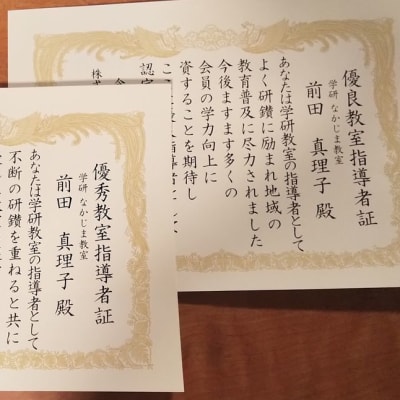 優良教室指導者証
学研 なかじま教室
前田 真理子 殿
あなたは学研教室の指導者として
よく研鑽に励まれ地域の
教育普及に尽力されました
今後ますます多くの
会員の学力向上に
資することを期待し
優秀教室指導者証
学研 なかじま教室
前田 真理子 殿
あなたは学研教室の指導者として
不断の研鑽を重ねると共に